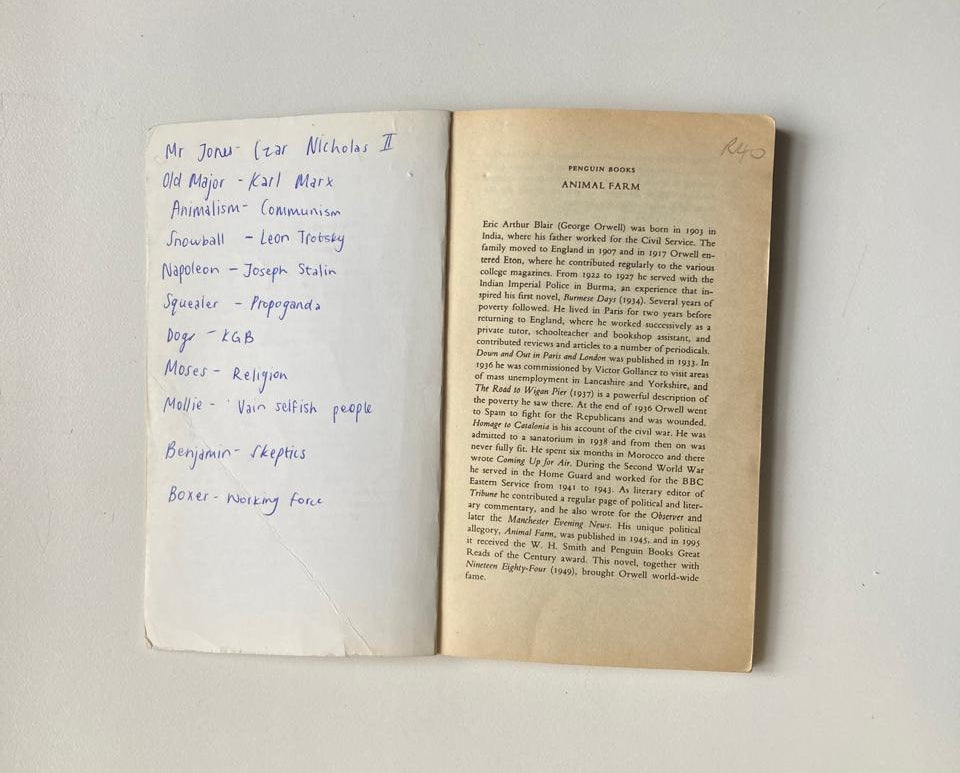 Mr Jones - Czar Nicholas II
Old Major - Karl Marx
Animalism - Communism
Snowball - Leon Trotsky
Napoleon - Joseph Stalin
Squealer - Propoganda
Dogs - KGB
Moses - Religion
Mollie - Vain selfish people
Benjamin - Skeptics
Boxer - Working force
R40
PENGUIN BOOKS
ANIMAL FARM
Eric Arthur Blair (George Orwell) was born in 1903 in
India, where his father worked for the Civil Service. The
family moved to England in 1907 and in 1917 Orwell en-
tered Eton, where he contributed regularly to the various
college magazines. From 1922 to 1927 he served with the
Indian Imperial Police in Burma, an experience that in-
spired his first novel, Burmese Days (1934). Several years of
poverty followed. He lived in Paris for two years before
returning to England, where he worked successively as a
private tutor, schoolteacher and bookshop assistant, and
contributed reviews and articles to a number of periodicals.
Down and Out in Paris and London was published in 1933. In
1936 he was commissioned by Victor Gollancz to visit areas
of mass unemployment in Lancashire and Yorkshire, and
The Road to Wigan Pier (1937) is a powerful description of
the poverty he saw there. At the end of 1936 Orwell went
to Spain to fight for the Republicans and was wounded.
Homage to Catalonia is his account of the civil war. He was
admitted to a sanatorium in 1938 and from then on was
never fully fit. He spent six months in Morocco and there
wrote Coming Up for Air. During the Second World War
he served in the Home Guard and worked for the BBC
Eastern Service from 1941 to 1943. As literary editor of
Tribune he contributed a regular page of political and liter-
ary commentary, and he also wrote for the Observer and
later the Manchester Evening News. His unique political
allegory, Animal Farm, was published in 1945, and in 1995
it received the W. H. Smith and Penguin Books Great
Reads of the Century award. This novel, together with
Nineteen Eighty-Four (1949), brought Orwell world-wide
fame.